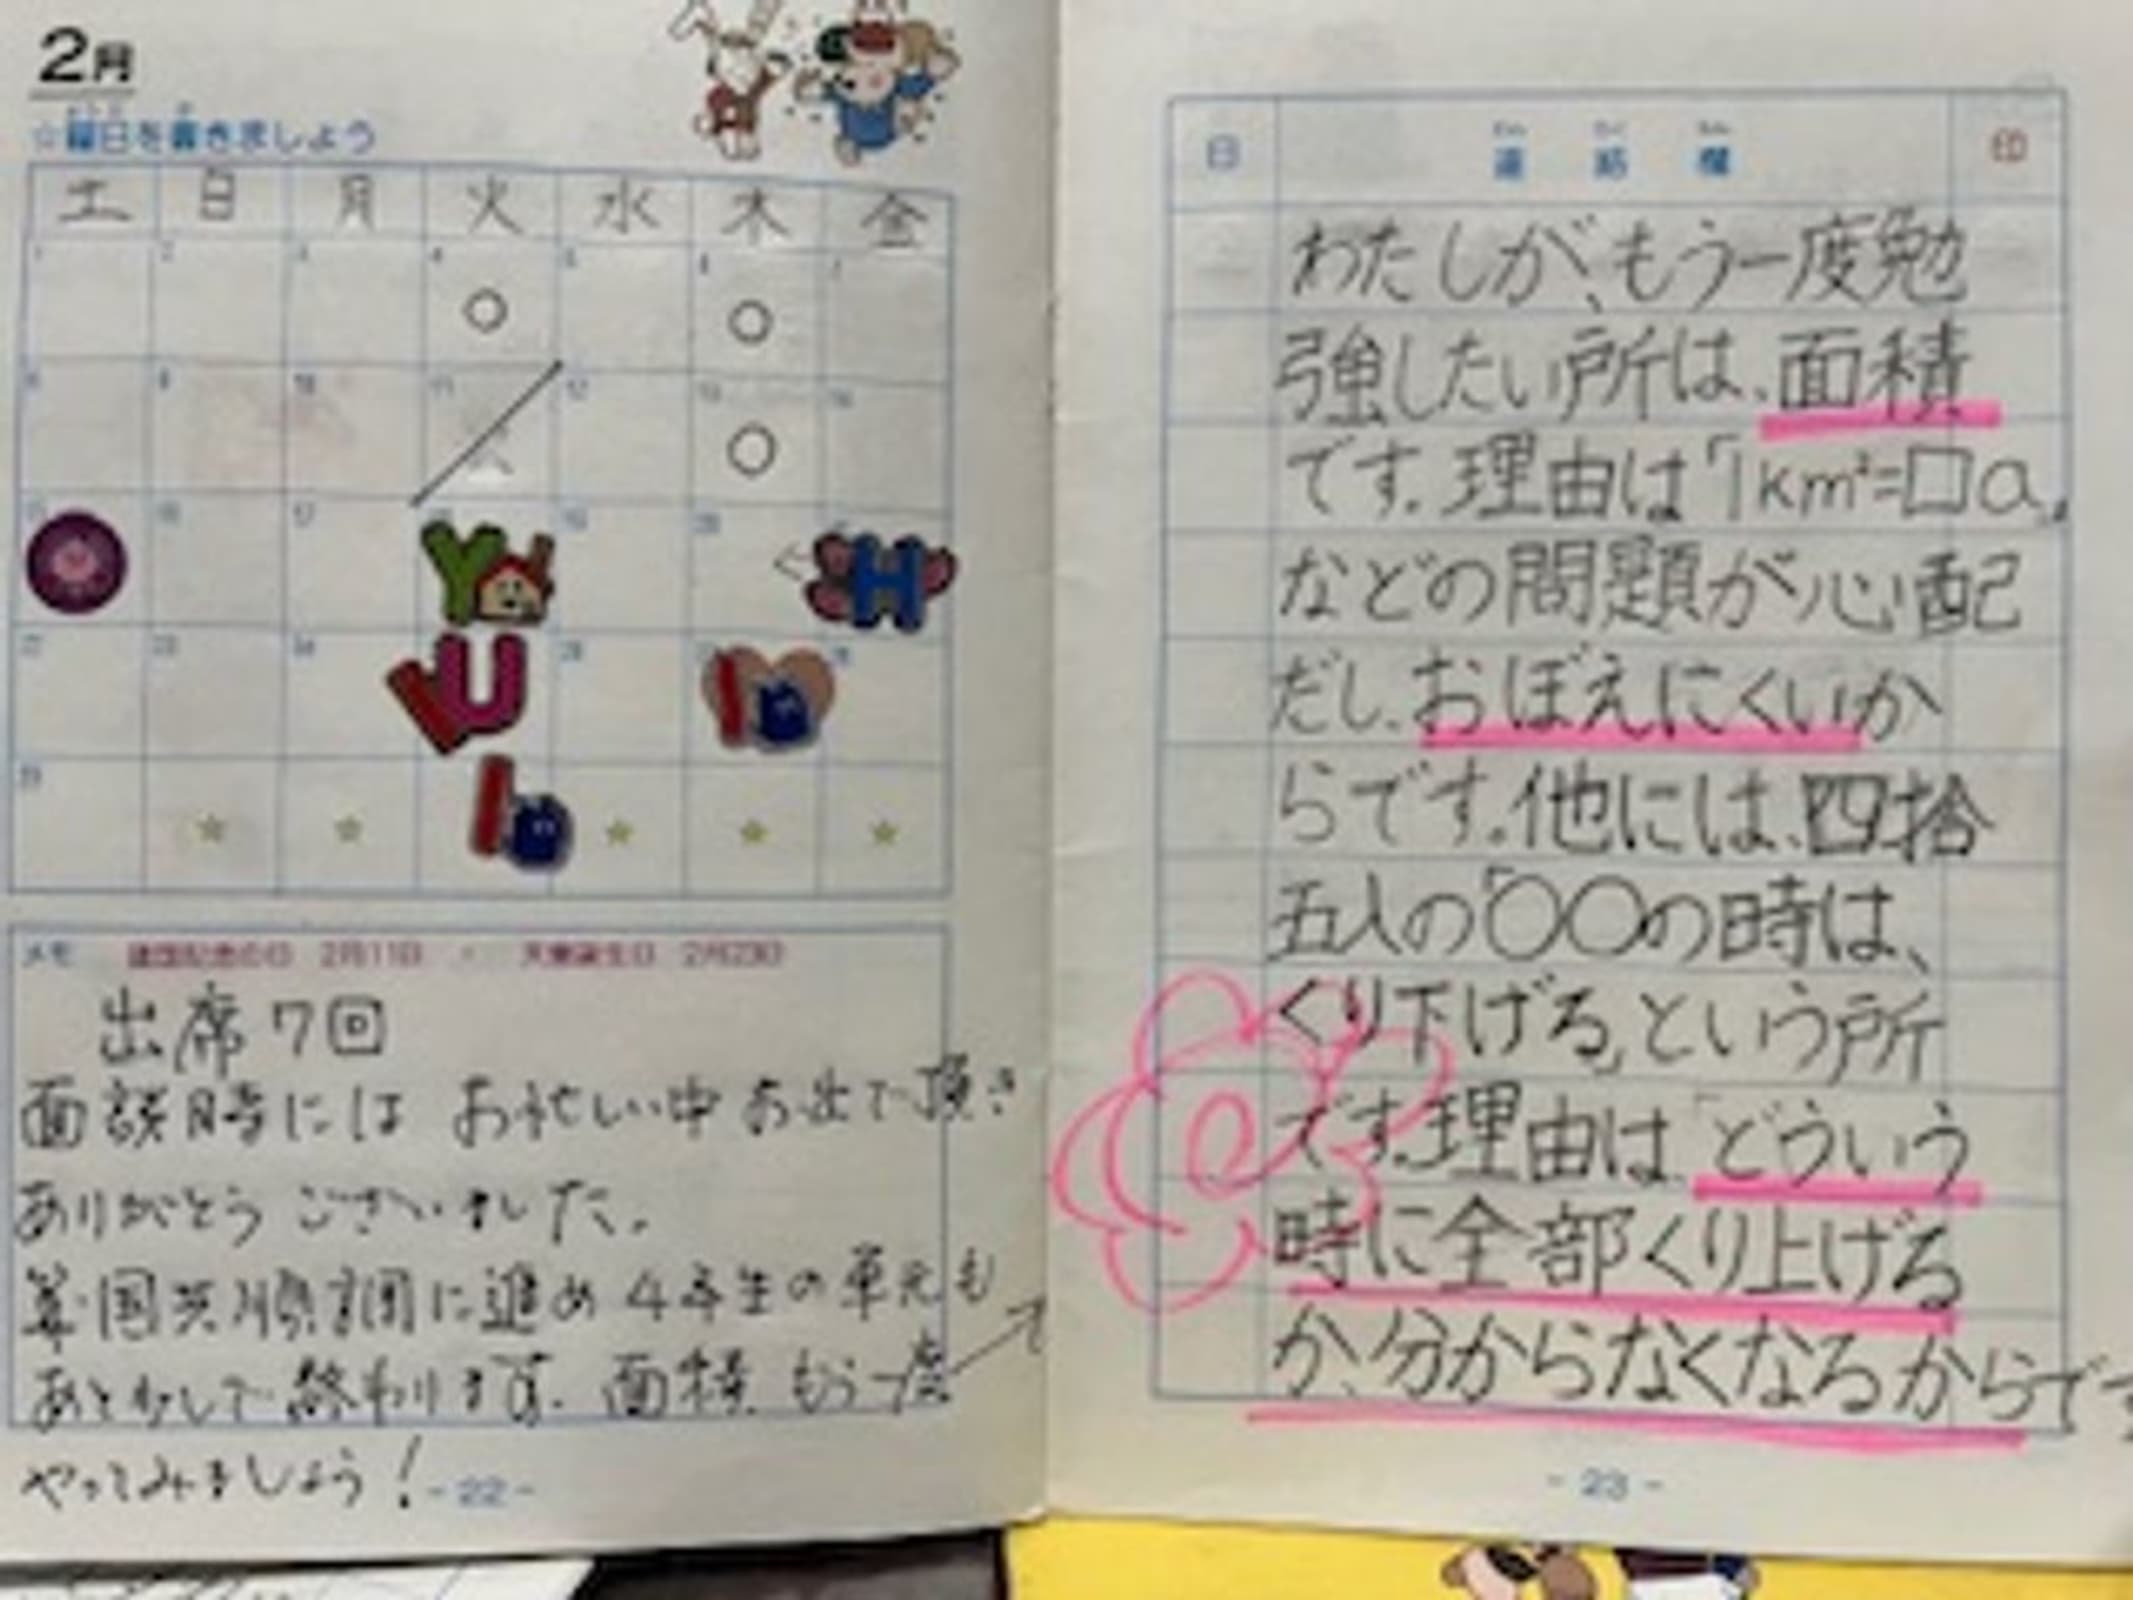 2月
☆曜日を書きましょう
土 日 月 火 水 木 金
1 2 3 4 5 6 7
8 9 10 11 12 13 14
16 17 19 20
22 23 24 26
29
メモ 建国記念の日 2月11日 ・ 天皇誕生日 2月23日
出席7回
面談時には お忙しい中 お出で頂き
ありがとう ございました。
算・国共順調に進め 4年生の単元も
あと少しで 終わります。面積 もう一度
やってみましょう!
- 22 -
日 連絡欄 印
わたしが、もう一度勉
強したい所は、面積
です。理由は「1km²=□a」
などの問題が心配
だし、おぼえにくいか
らです。他には、四捨
五入の「〇〇の時は、
くり下げる」という所
です。理由は「どういう
時に全部くり上げる
か、分からなくなるからです
- 23 -